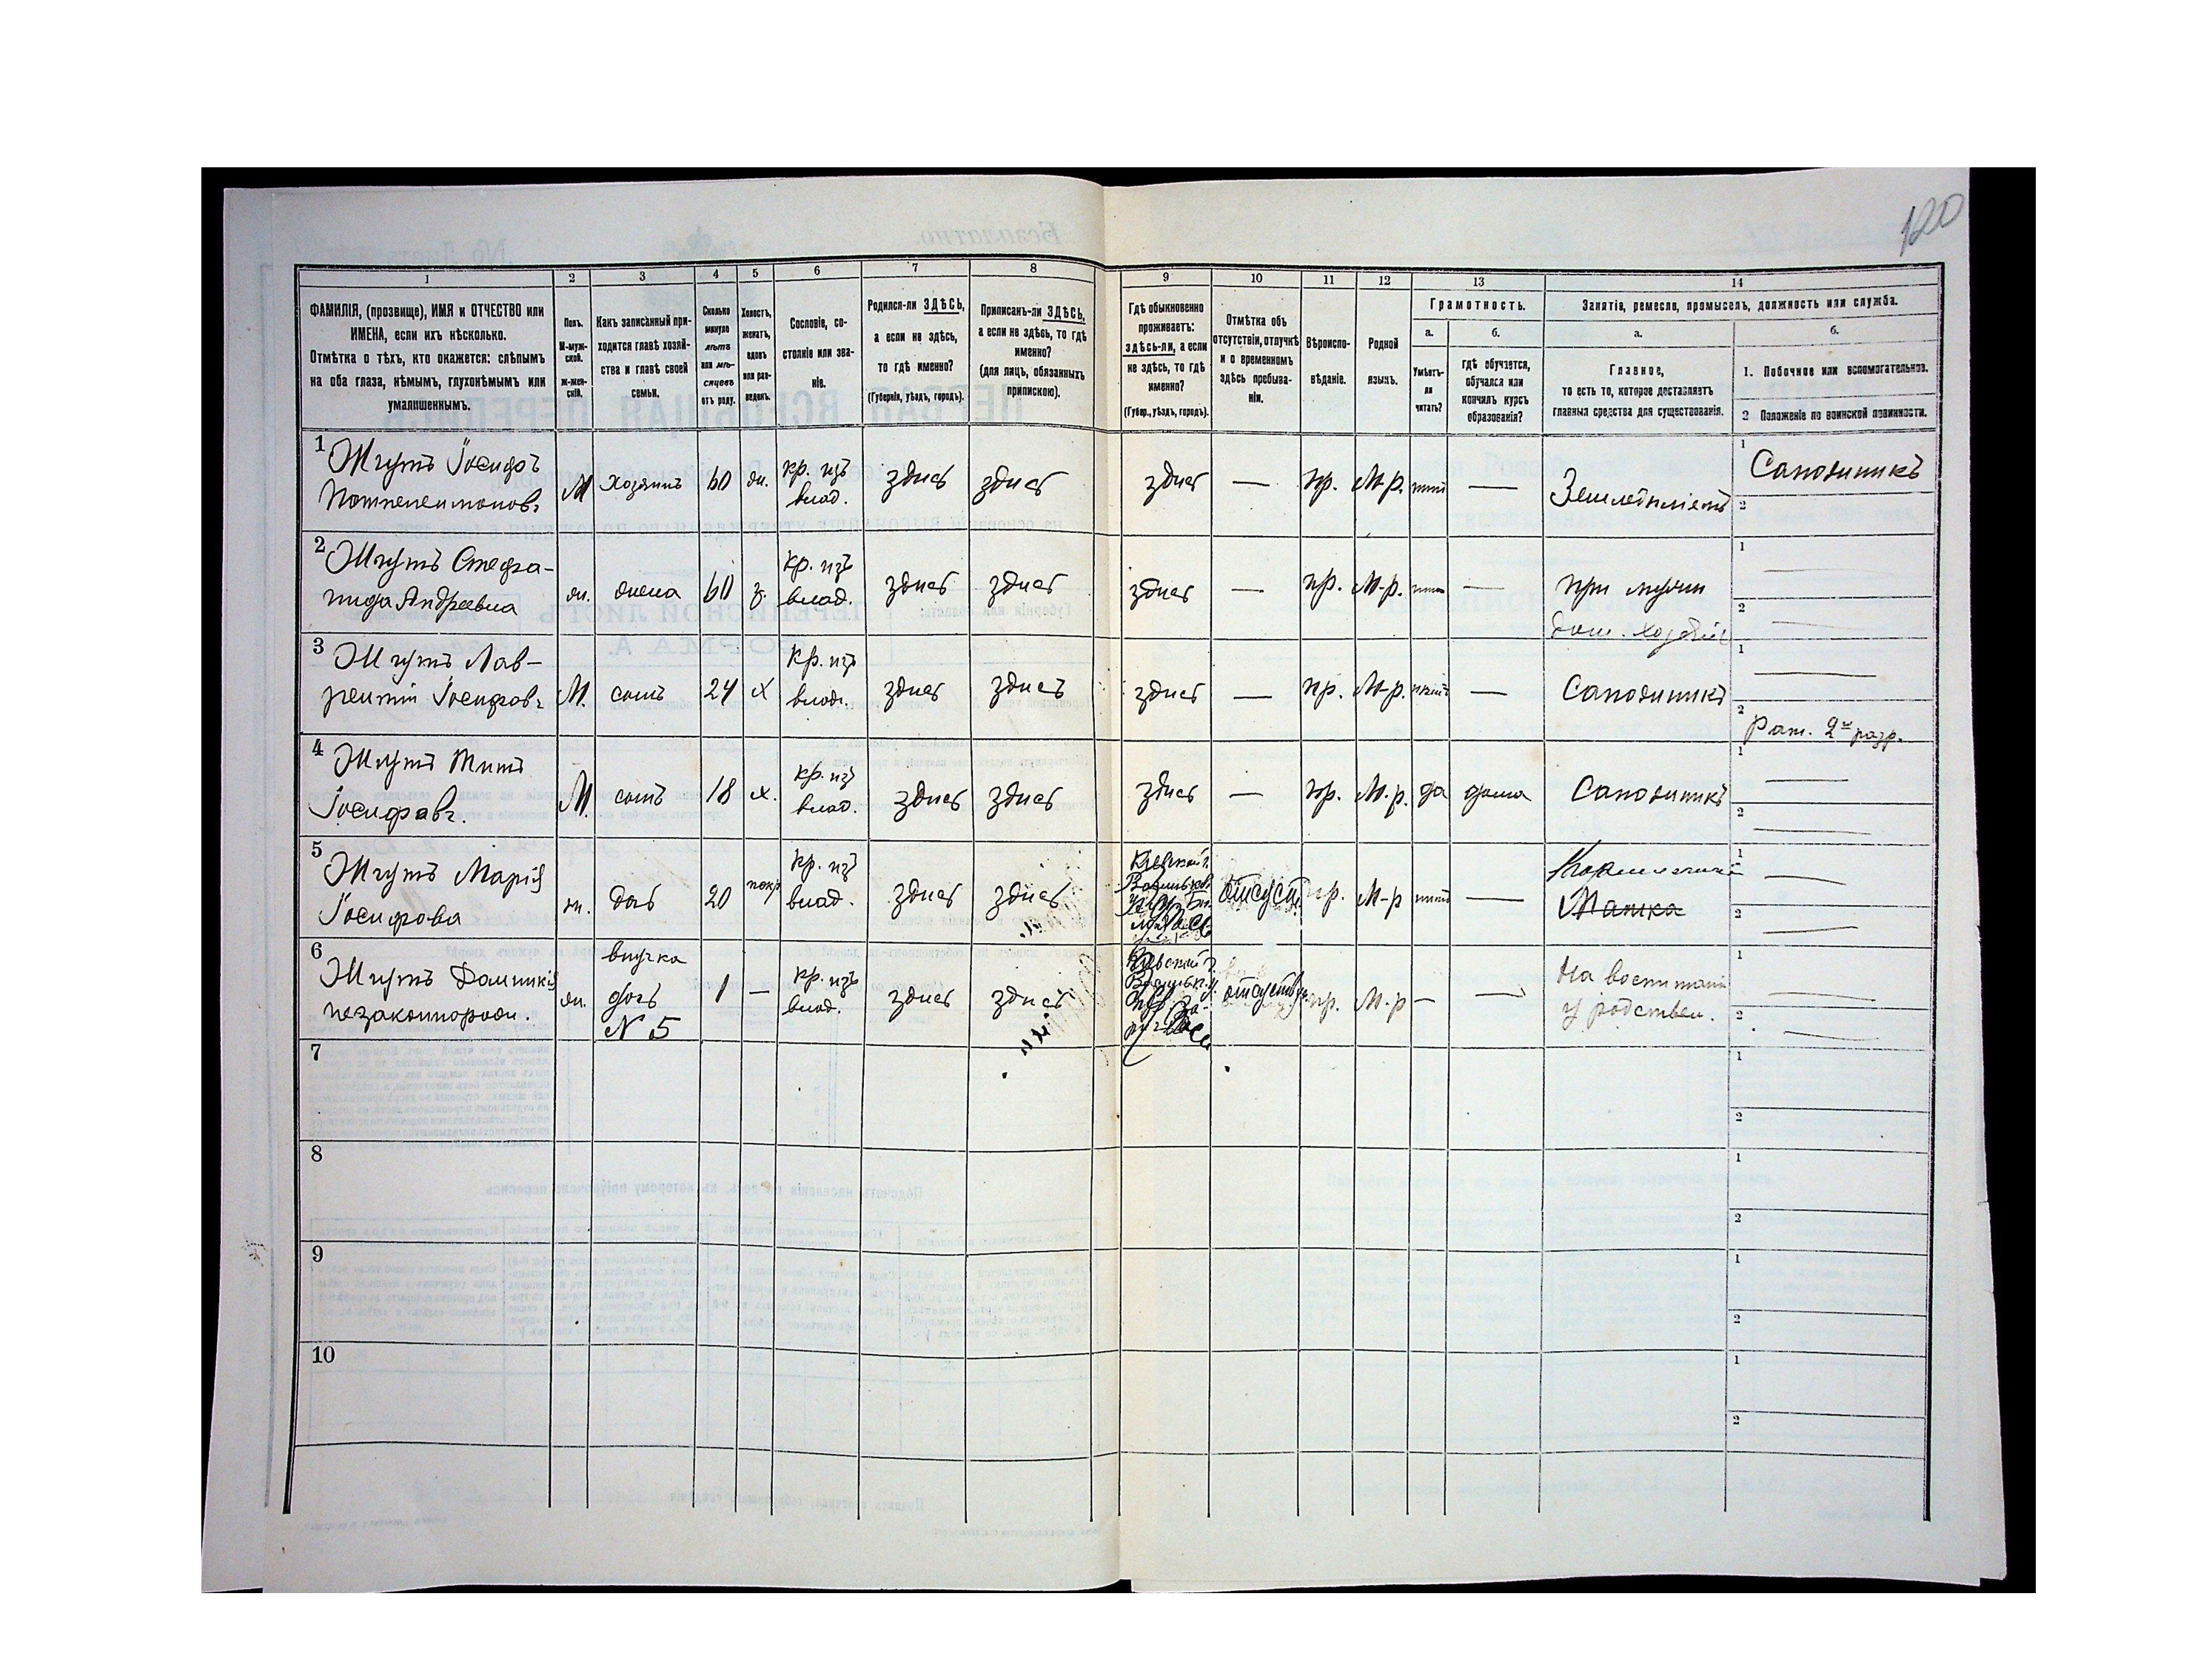 120
1
2
3
4
5
6
7
8
9
10
11
12
13
14
ФАМИЛІЯ, (прозвище), ИМЯ и ОТЧЕСТВО или
ИМЕНА, если ихъ нѣсколько.
Отмѣтка о тѣхъ, кто окажется: слѣпымъ
на оба глаза, нѣмымъ, глухонѣмымъ или
умалишеннымъ.
Полъ.
М-муж-
ской.
ж-жен-
скій.
Какъ записанный при-
ходится главѣ хозяй-
ства и главѣ своей
семьи.
Сколько
минуло
лѣтъ
или мѣ-
сяцевъ
отъ роду.
Холостъ,
женатъ,
вдовъ
или раз-
веденъ.
Сословіе, со-
стояніе или зва-
ніе.
Родился-ли ЗДѢСЬ,
а если не здѣсь,
то гдѣ именно?
(Губернія, уѣздъ, городъ).
Приписанъ-ли ЗДѢСЬ,
а если не здѣсь, то гдѣ
именно?
(для лицъ, обязанныхъ
припискою).
Гдѣ обыкновенно
проживаетъ:
здѣсь-ли, а если
не здѣсь, то гдѣ
именно?
(Губер., уѣздъ, городъ).
Отмѣтка объ
отсутствіи, отлучкѣ
и о временномъ
здѣсь пребыва-
ніи.
Вѣроиспо-
вѣданіе.
Родной
языкъ.
Грамотность.
а.
Умѣетъ-
ли
читать?
б.
гдѣ обучается,
обучался или
кончилъ курсъ
образованія?
Занятія, ремесло, промыселъ, должность или служба.
а.
Главное,
то есть то, которое доставляетъ
главныя средства для существованія.
б.
1. Побочное или вспомогательное.
2 Положеніе по воинской повинности.
1 Жгутъ Іосифъ
М хозяинъ 60 ж. кр. изъ
влад. здѣсь здѣсь здѣсь — пр. М-р. нѣтъ — Земледѣліемъ
1 Сапожникъ
2
2 Жгутъ Стефа-
нида Андреевна
ж. жена 60 з. кр. изъ
влад. здѣсь здѣсь здѣсь — пр. М-р. нѣтъ — при мужи
дом. хозяйс
1 —
2 —
3 Жгутъ Лав-
рентій Іосифов.
М. сынъ 24 х кр. изъ
влад. здѣсь здѣсь здѣсь — пр. М-р. нѣтъ — Сапожникъ
1 —
2 Рат. 2го разр.
4 Жгутъ Титъ
Іосифовъ.
М. сынъ 18 х. кр. изъ
влад. здѣсь здѣсь здѣсь — пр. М.р. да дома Сапожникъ
1 —
2 —
5 Жгутъ Марія
Іосифова
ж. дочь 20 покр кр. изъ
влад. здѣсь здѣсь
отсуств. пр. М-р нѣтъ —
Мамка
1 —
2 —
6 Жгутъ Домникія
незаконнорож.
ж. внучка
дочь
N 5
1 — кр. изъ
влад. здѣсь здѣсь Кіевской г.
отсуств. пр. М-р — — На воспитаніи
у родствен.
1 —
2 —
7
1
2
8
1
2
9
1
2
10
1
2